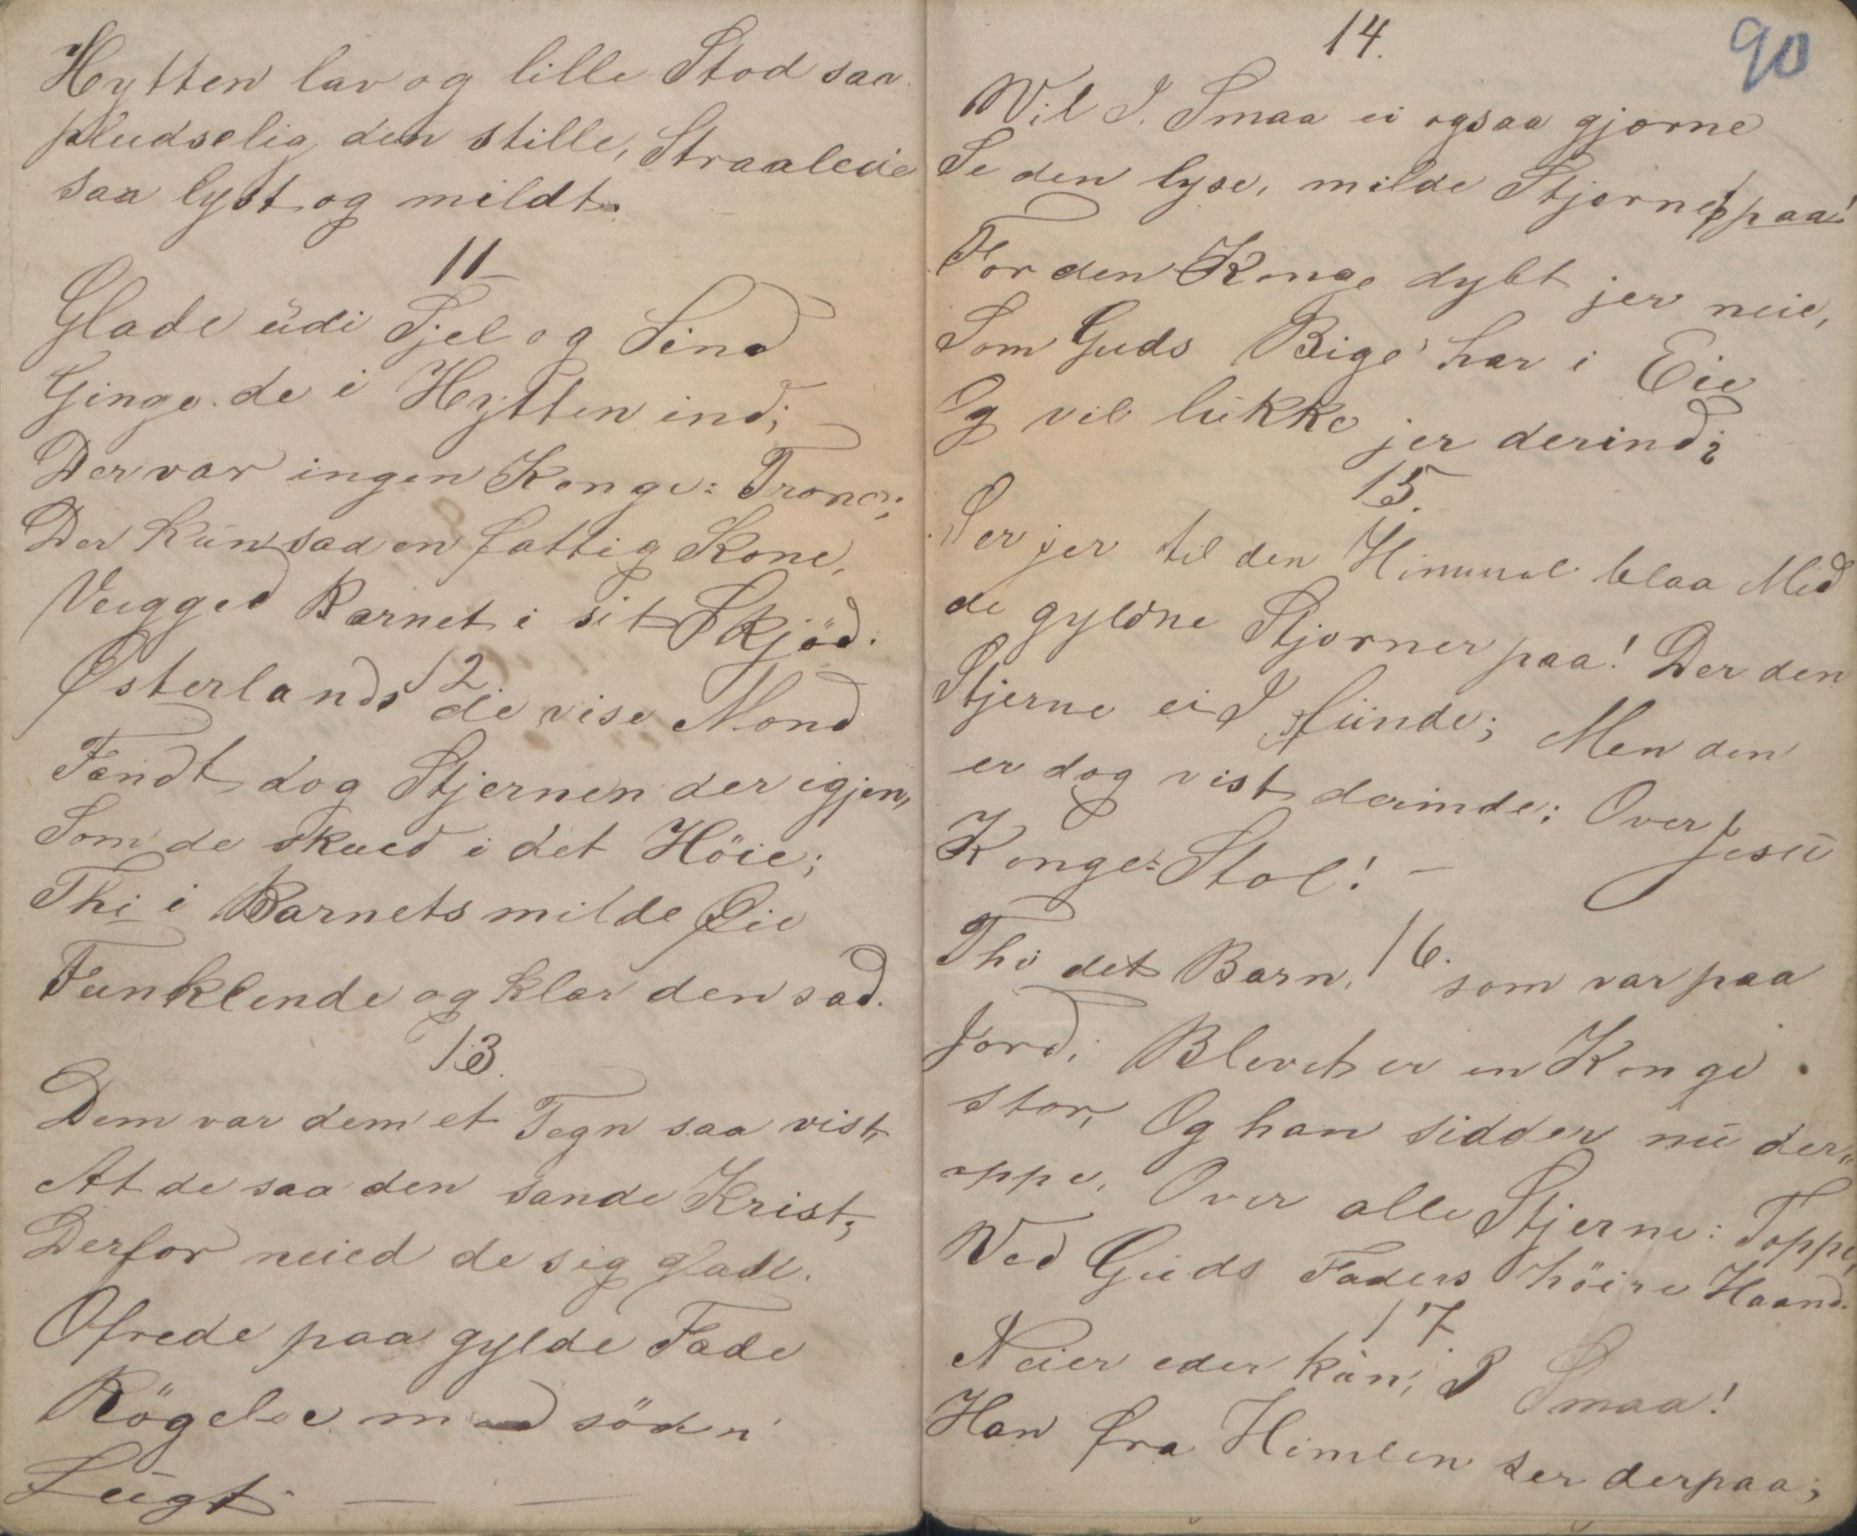 Hytten lav og lille Stod saa
pludselig den stille, Straalede
saa lyst og mildt.
11
Glade üdi Sjel og Sind
Ginge de i Hytten ind;
Der var ingen Konge: Trone;
Der kün sad en fattig Kone,
Vugged Barnet i sit Skjöd.
12
Østerlands de vise Mend
Fandt dog Stjernen der igjen,
Som de skued i det Höie;
Thi i Barnets milde Øie
Funklende og klar den sad.
13.
Dem var dem et Tegn saa vist,
At de saa den sande Krist;
Derfor neied de sig glade.
Ofrede paa gylde Fade
Rögelse med söden
Lügt. — —
90
14.
Wil I. Smaa ei ogsaa gjerne
Se den lyse, milde Stjerne
paa!
For den Konge dybt jer neie,
Som Guds Rige har i Eie
Og vil lükke jer derind?
15.
Ser jer til den Himmel blaa Med
de gyldne Stjerner paa! Der den
Stjerne ei I fünde; Men den
er dog vist derinde; Over Jesü
Konge: Stol! —
16.
Thi det Barn, som var paa
Jord, Blevet er en Konge
stor, Og han sidder nü der„
oppe, Over alle Stjerne: Toppe,
Ved Guds Faders höire Haand.
17
Neier eder kün, I Smaa!
Han fra Himlen ser derpaa;